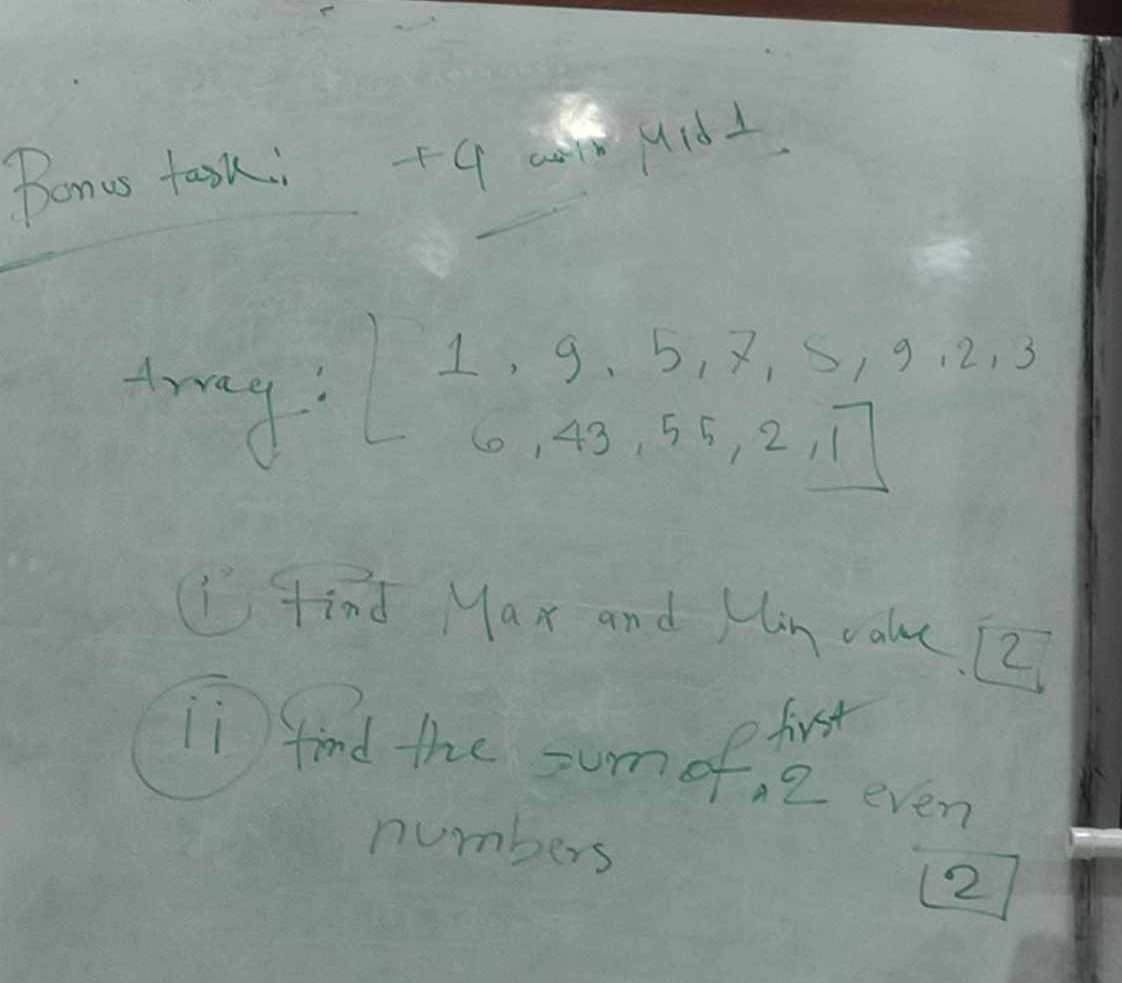 Bonus task: +4 with Mid 1.
Array: [ 1, 9, 5, 7, 8, 9, 2, 3
6, 43, 55, 2, 1]
i find Max and Min value. [2]
ii find the sum of first 2 even
numbers
[2]